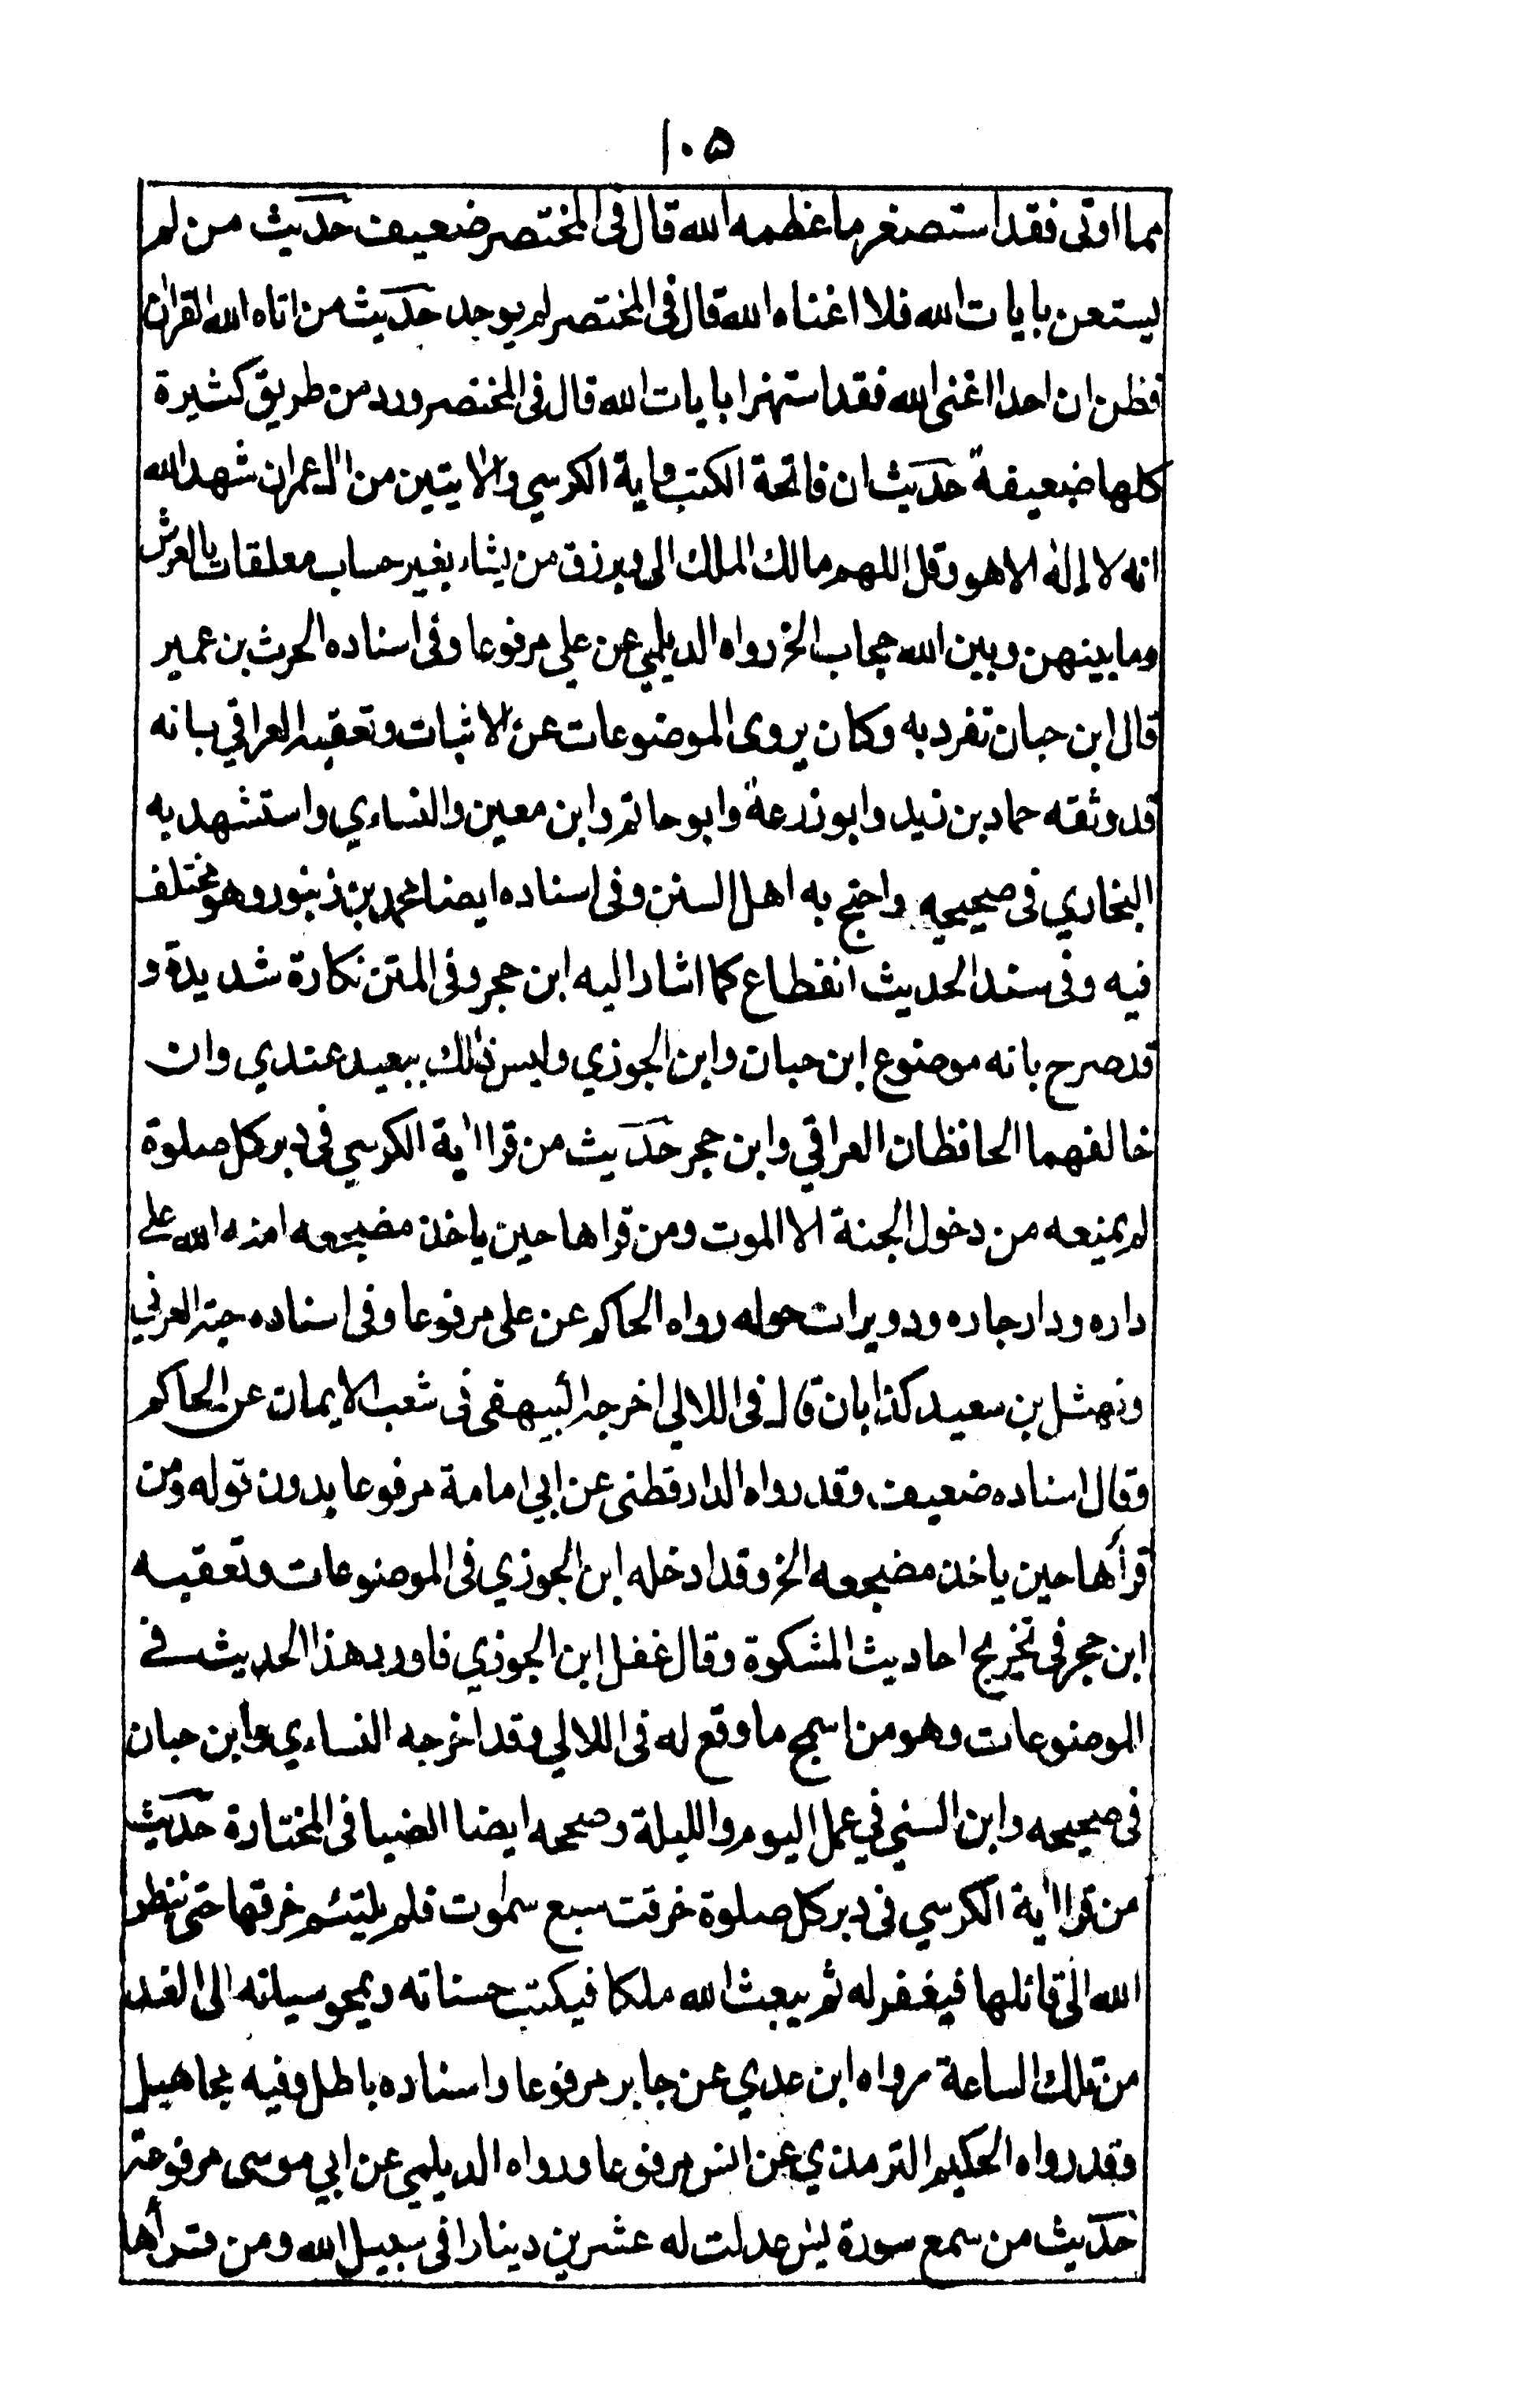 ١٠٥
مما اوتى فقد استصغر ما عظمه الله قال فى المختصر ضعيف حديث من لم
يستعن بايات الله فلا اغناه الله قال فى المختصر لم يوجد حديث من اتاه الله القران
فظن ان احدا اغنى الله فقد استهزا بايات الله قال فى المختصر ورد من طريق كثيرة
كلها ضعيفة حديث ان فاتحة الكتب واية الكرسي والايتين من ال عمران شهد الله
انه لا اله الا هو وقل اللهم مالك الملك الى ويرزق من يشاء بغير حساب معلقات بالعرش
وما بينهن وبين الله حجاب الخ رواه الديلمي عن علي مرفوعا وفى اسناده الحرث بن عمير
قال ابن حبان تفرد به وكان يروى الموضوعات عن الاثبات وتعقبه العراقي بانه
قد وثقه حماد بن زيد وابو زرعة وابو حاتم وابن معين والنساءي واستشهد به
البخاري فى صحيحه واحتج به اهل السنن وفى اسناده ايضا محمد بن زنبور وهو مختلف
فيه وفى سند الحديث انقطاع كما اشار اليه ابن حجر وفى المتن نكارة شديدة و
قد صرح بانه موضوع ابن حبان وابن الجوزي وليس ذلك ببعيد عندي وان
خالفهما الحافظان العراقي وابن حجر حديث من قرا اية الكرسي فى دبر كل صلوة
لم يمنعه من دخول الجنة الا الموت ومن قراها حين ياخذ مضجعه امنه الله على
داره ودار جاره ودويرات حوله رواه الحاكم عن على مرفوعا وفى اسناده حبة العرني
ونهشل بن سعيد كذابان قال فى اللالي اخرجه البيهقى فى شعب الايمان عن الحاكم
وقال اسناده ضعيف وقد رواه الدارقطنى عن ابي امامة مرفوعا بدون قوله ومن
قرأها حين ياخذ مضجعه الخ وقد ادخله ابن الجوزي فى الموضوعات وتعقبه
ابن حجر فى تخريج احاديث المشكوة وقال غفل ابن الجوزي فاورد هذا الحديث في
الموضوعات وهو من اسمج ما وقع له فى اللالي وقد اخرجه النساءي وابن حبان
فى صحيحه وابن السني في عمل اليوم والليلة وصححه ايضا الضيا فى المختارة حديث
من قرا اية الكرسي فى دبر كل صلوة خرقت سبع سموت فلم يلتئم خرقها حتى ينظر
الله الى قائلها فيغفر له ثم يبعث الله ملكا فيكتب حسناته ويمحو سياته الى الغد
من تلك الساعة رواه ابن عدي عن جابر مرفوعا واسناده باطل وفيه مجاهيل
وقد رواه الحكيم الترمذي عن انس مرفوعا ورواه الديلمي عن ابي موسى مرفوعة
حديث من سمع سورة يس عدلت له عشرين دينارا فى سبيل الله ومن قرأها